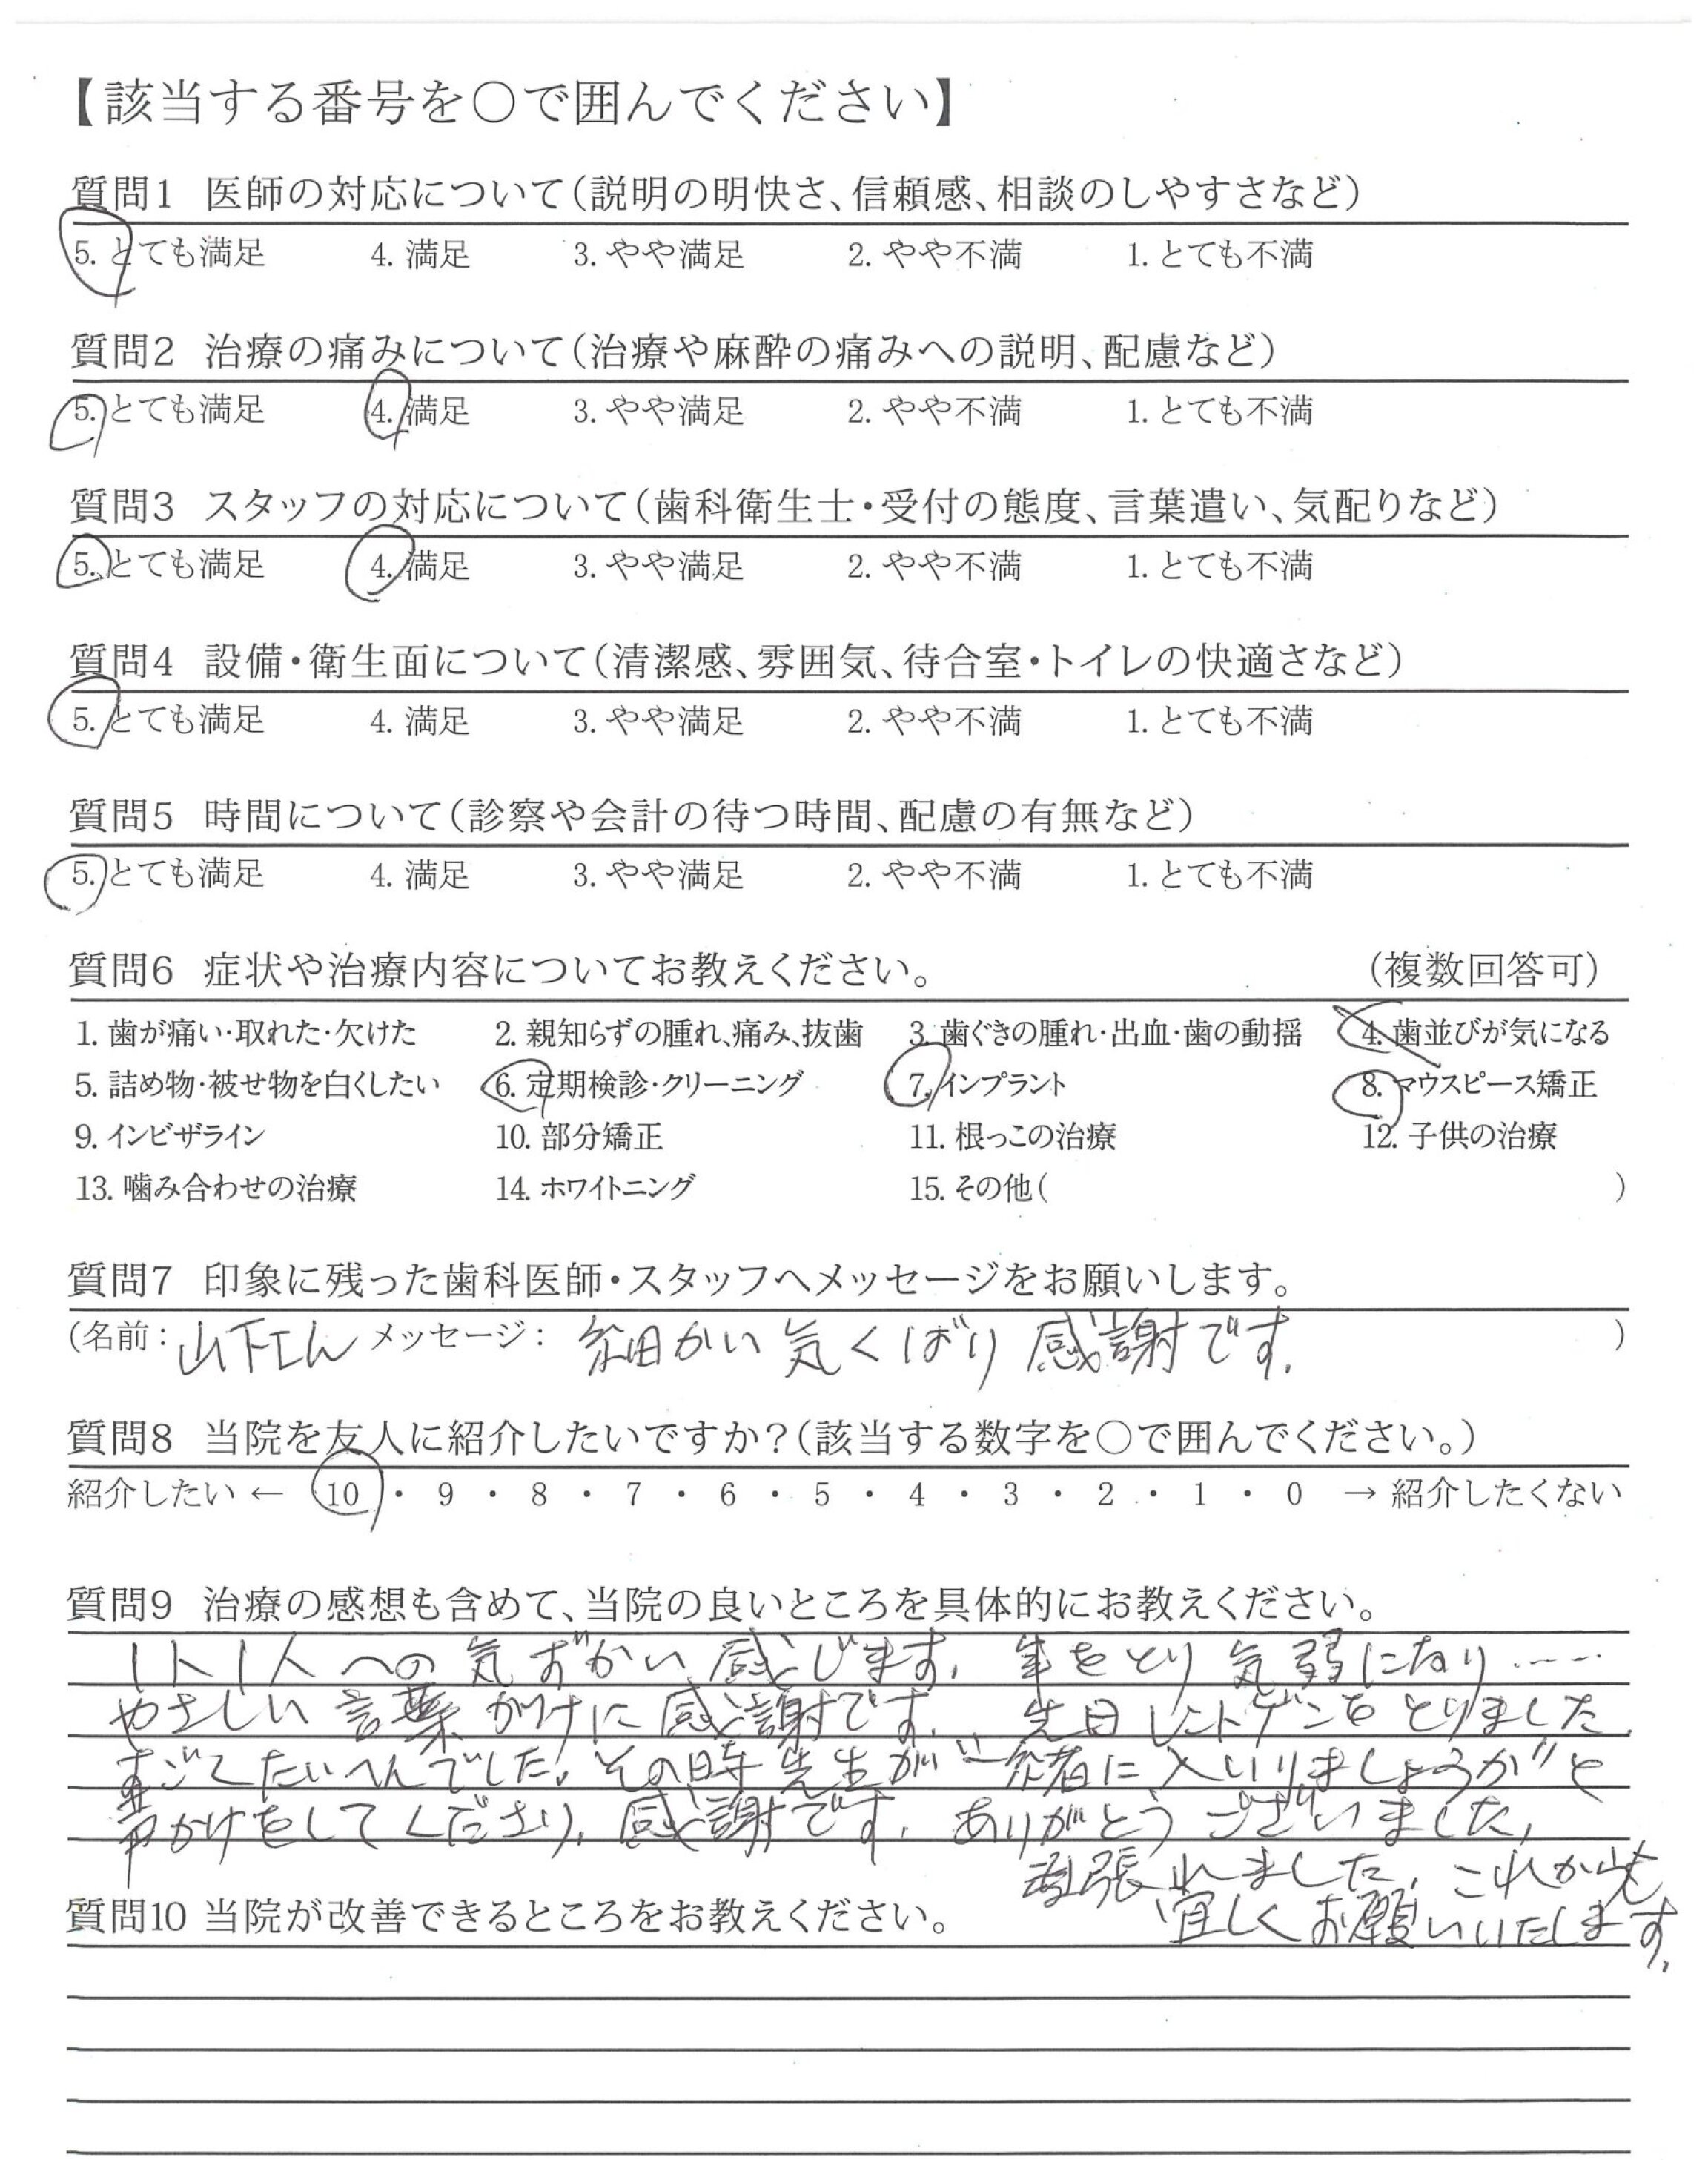 【該当する番号を○で囲んでください】
質問1 医師の対応について(説明の明快さ、信頼感、相談のしやすさなど)
5. とても満足 4. 満足 3. やや満足 2. やや不満 1. とても不満
質問2 治療の痛みについて(治療や麻酔の痛みへの説明、配慮など)
5. とても満足 4. 満足 3. やや満足 2. やや不満 1. とても不満
質問3 スタッフの対応について(歯科衛生士・受付の態度、言葉遣い、気配りなど)
5. とても満足 4. 満足 3. やや満足 2. やや不満 1. とても不満
質問4 設備・衛生面について(清潔感、雰囲気、待合室・トイレの快適さなど)
5. とても満足 4. 満足 3. やや満足 2. やや不満 1. とても不満
質問5 時間について(診察や会計の待つ時間、配慮の有無など)
5. とても満足 4. 満足 3. やや満足 2. やや不満 1. とても不満
質問6 症状や治療内容についてお教えください。 (複数回答可)
1. 歯が痛い・取れた・欠けた 2. 親知らずの腫れ、痛み、抜歯 3. 歯ぐきの腫れ・出血・歯の動揺 4. 歯並びが気になる
5. 詰め物・被せ物を白くしたい 6. 定期検診・クリーニング 7. インプラント 8. マウスピース矯正
9. インビザライン 10. 部分矯正 11. 根っこの治療 12. 子供の治療
13. 噛み合わせの治療 14. ホワイトニング 15. その他( )
質問7 印象に残った歯科医師・スタッフへメッセージをお願いします。
(名前: 山下さん メッセージ: 細かい気くばり 感謝です。 )
質問8 当院を友人に紹介したいですか?(該当する数字を○で囲んでください。)
紹介したい ← 10 ・ 9 ・ 8 ・ 7 ・ 6 ・ 5 ・ 4 ・ 3 ・ 2 ・ 1 ・ 0 → 紹介したくない
質問9 治療の感想も含めて、当院の良いところを具体的にお教えください。
1人1人への気ずかい感じます。 年をとり気弱になり……
やさしい言葉がけに感謝です。 先日レントゲンをとりました。
すごくたいへんでした。その時先生が“一緒に入いりましょうか”と
声かけをしてくださり、感謝です。ありがとうございました。
頑張れました。これからも
宜しくお願いいたします。
質問10 当院が改善できるところをお教えください。